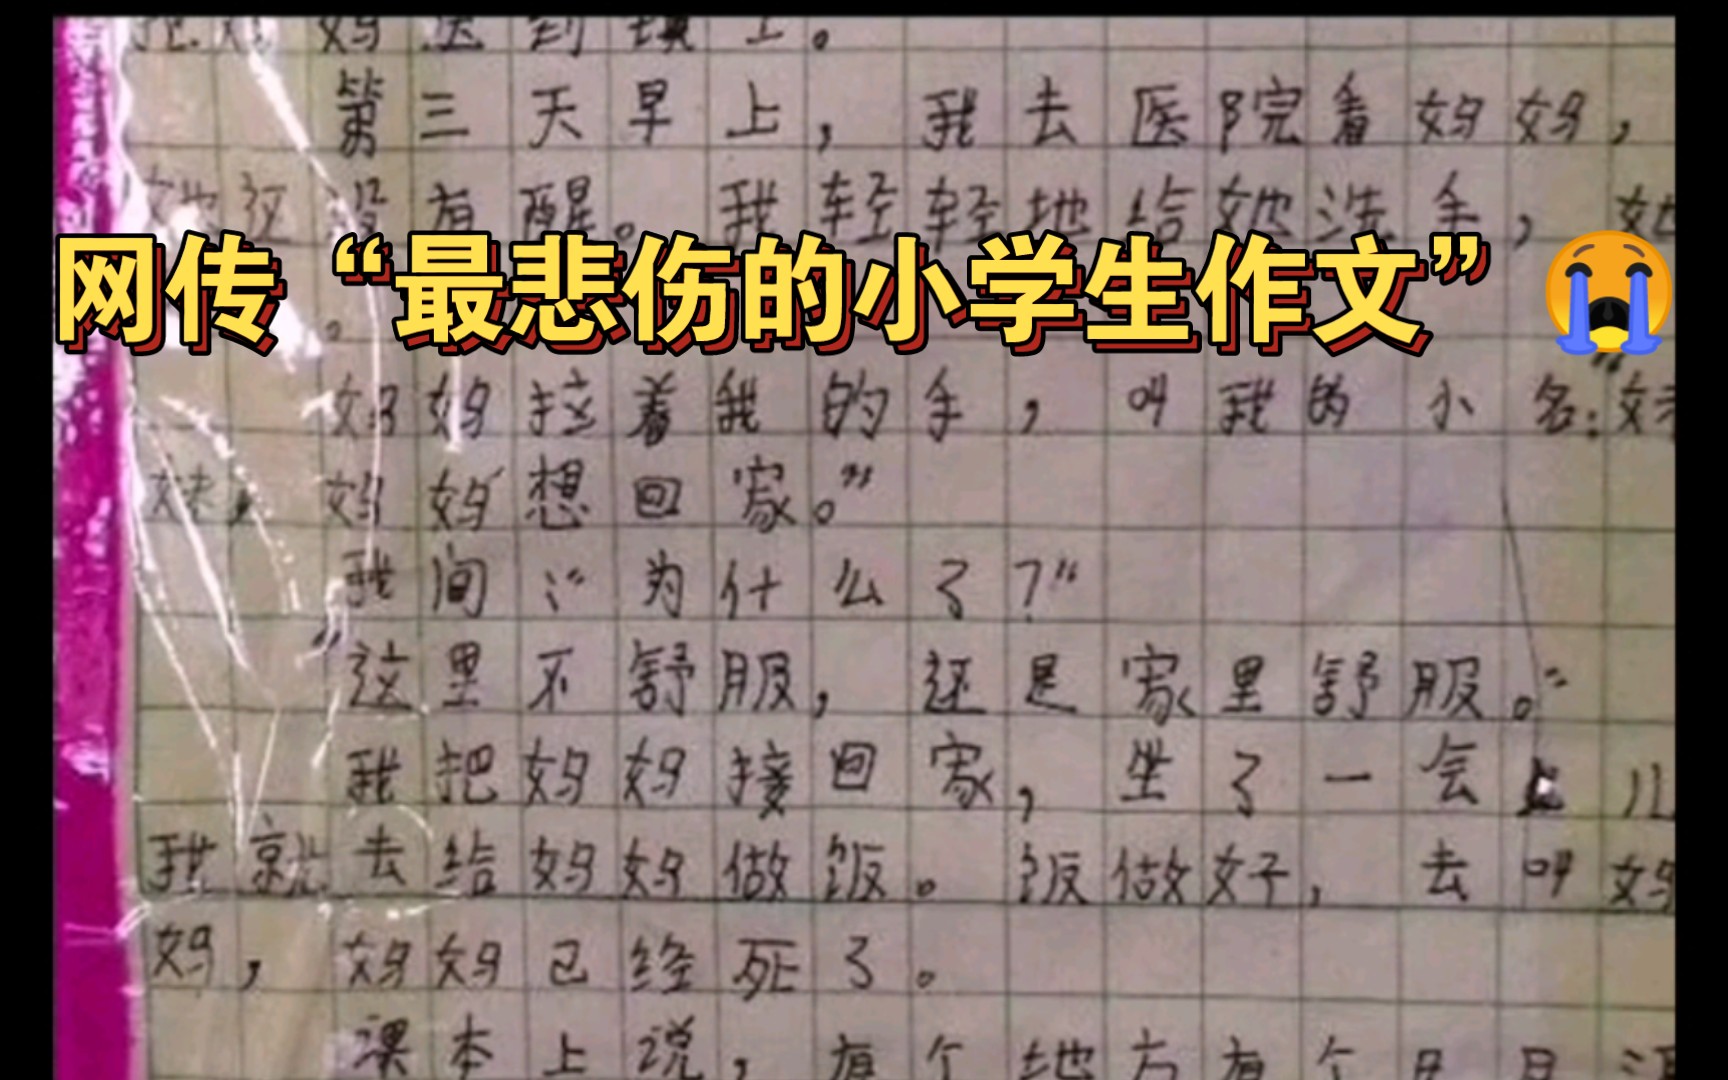 妈送到镇上。
第三天早上，我去医院看妈妈，
她还没有醒。我轻轻地给她洗手，她
网传“最悲伤的小学生作文”😭
妈妈拉着我的手，叫我的小名：“妹
妹，妈妈想回家。”
我问：“为什么了？”
“这里不舒服，还是家里舒服。”
我把妈妈接回家，坐了一会儿
我就去给妈妈做饭。饭做好，去叫妈
妈，妈妈已经死了。
课本上说，有个地方有个日月